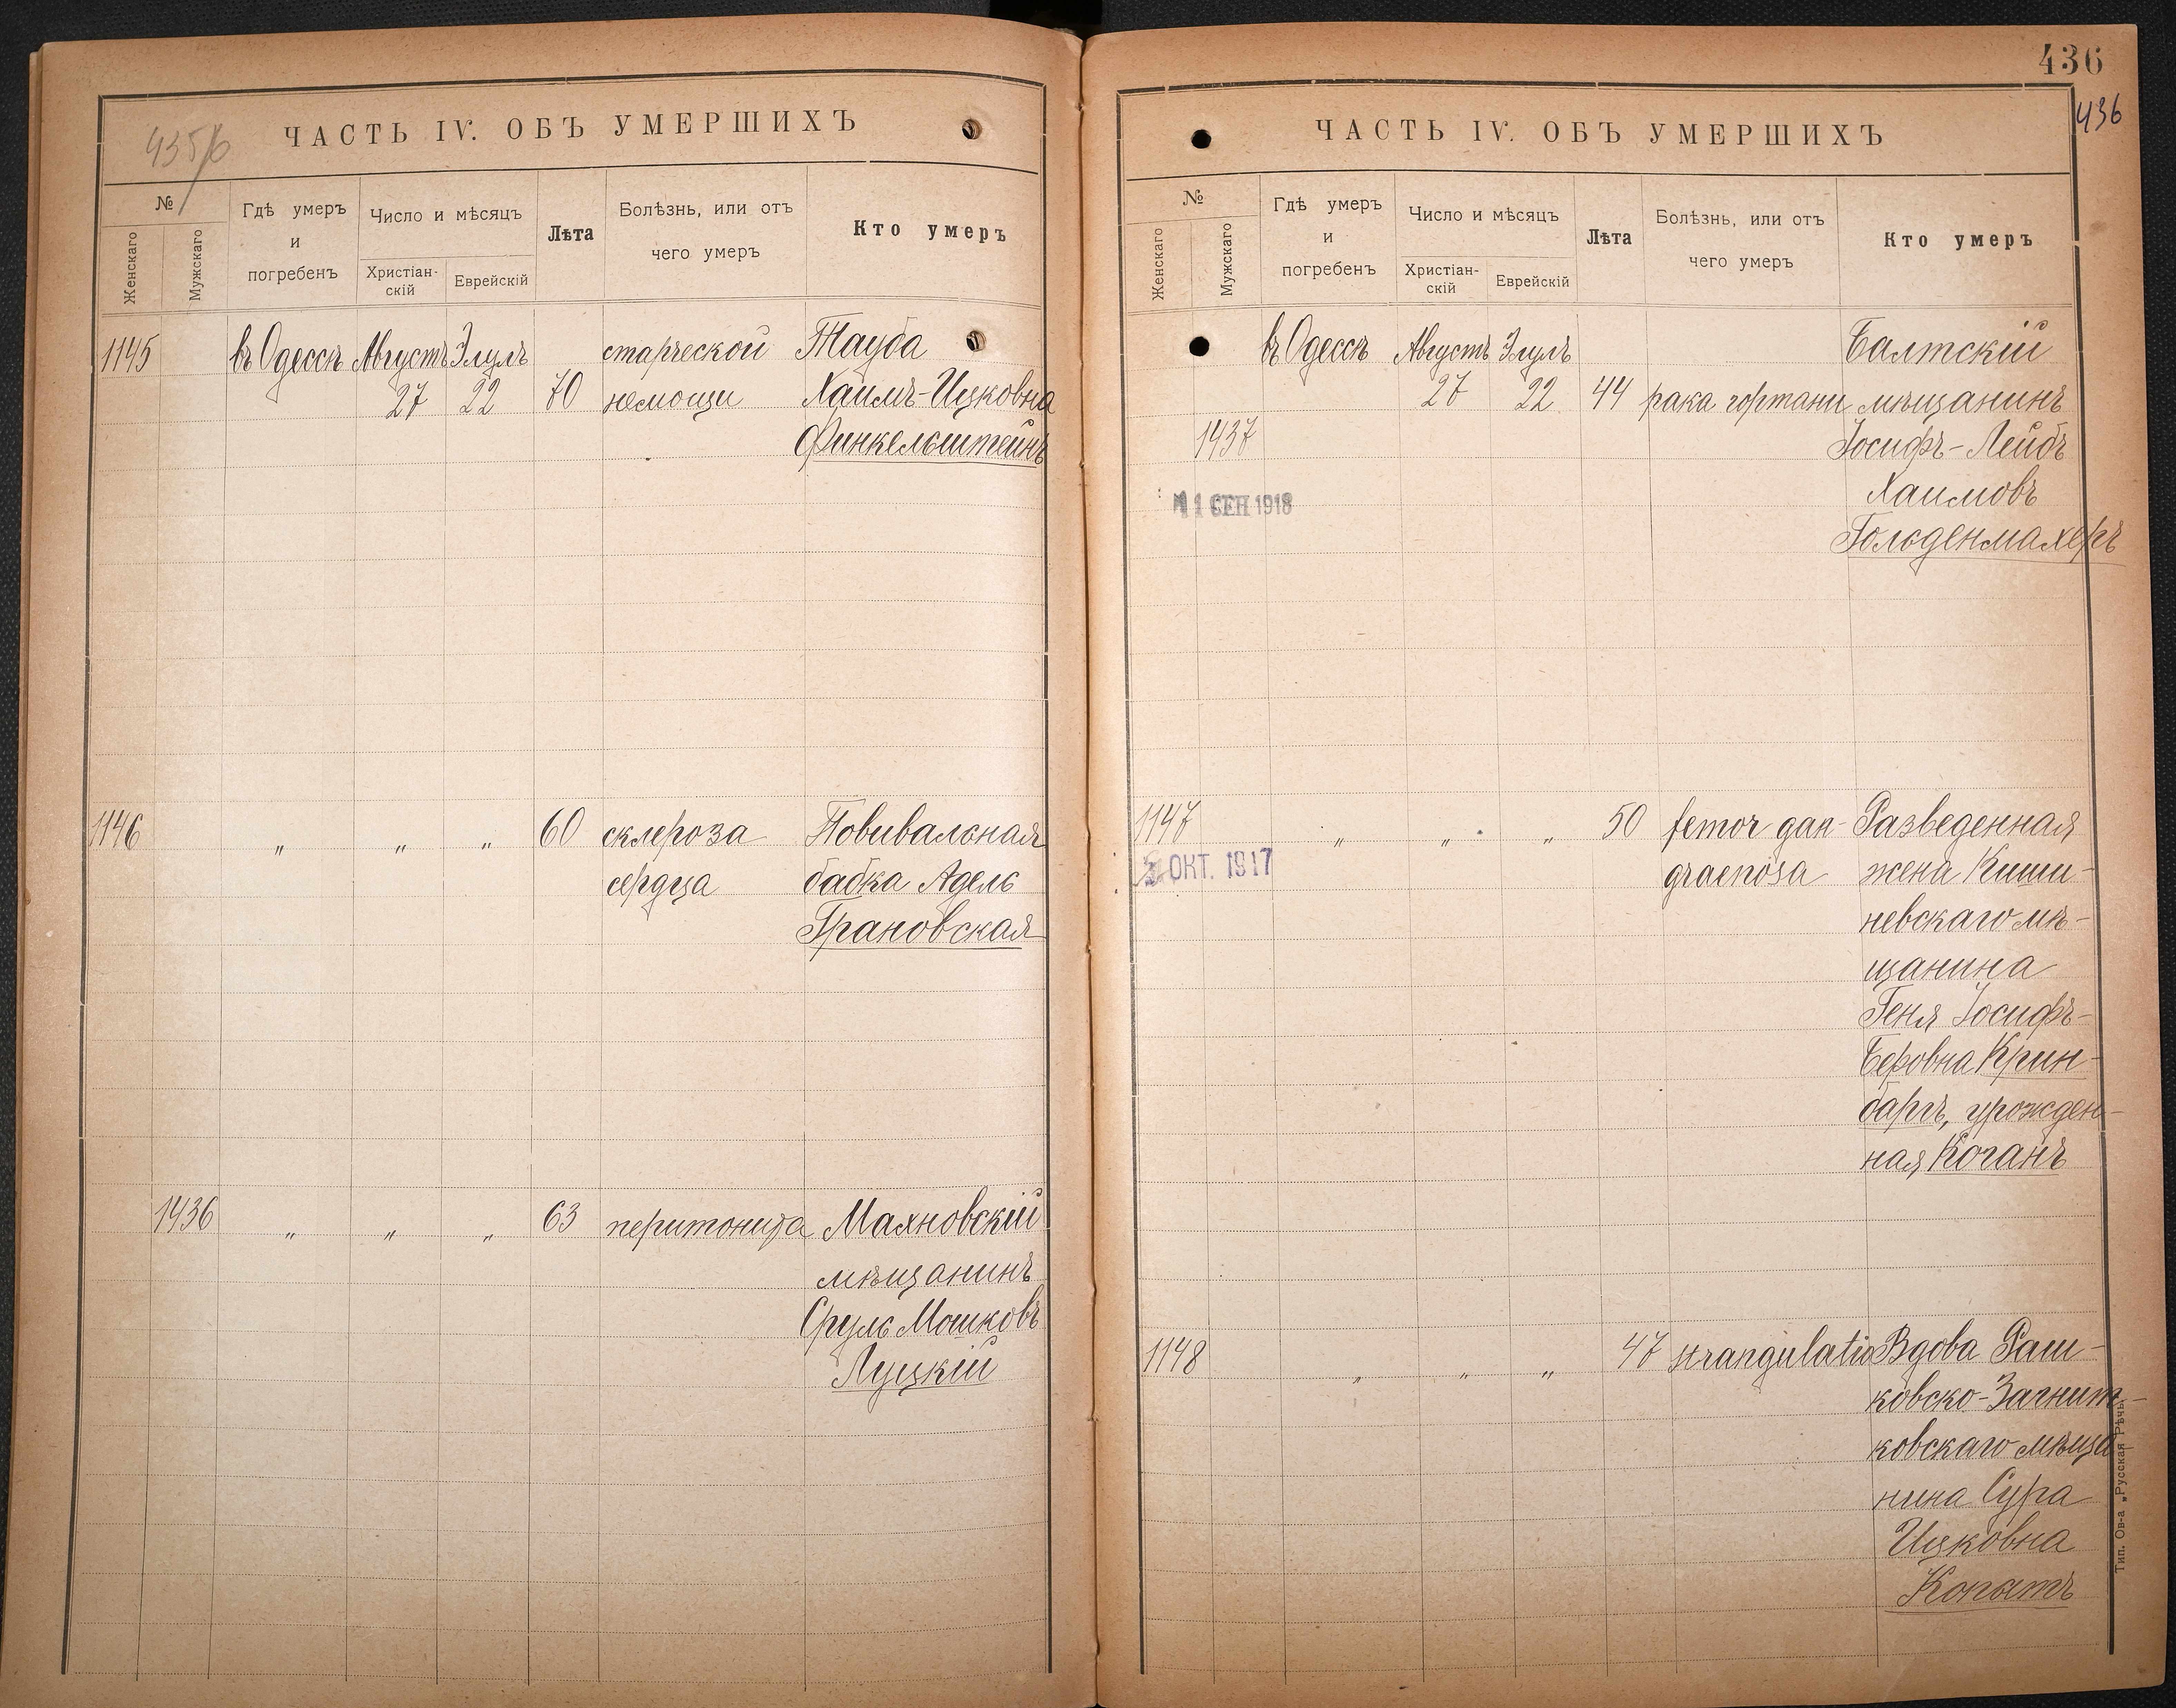 435/6
ЧАСТЬ IV. ОБЪ УМЕРШИХЪ
№
Женскаго
Мужскаго
Гдѣ умеръ
и
погребенъ
Число и мѣсяцъ
Христіан-
скій
Еврейскій
Лѣта
Болѣзнь, или отъ
чего умеръ
Кто умеръ
1145 въ Одессѣ Августъ Элулъ старческой Тауба
27 22 70 немощи Хаимъ-Ицковна
Финкельштейнъ
1146 " " " 60 склероза Повивальная
сердца бабка Адель
Грановская
1436 " " " 63 перитонита Маяновскій
мѣщанинъ
Сруль Мошковъ
Луцкій
436
436
ЧАСТЬ IV. ОБЪ УМЕРШИХЪ
№
Женскаго
Мужскаго
Гдѣ умеръ
и
погребенъ
Число и мѣсяцъ
Христіан-
скій
Еврейскій
Лѣта
Болѣзнь, или отъ
чего умеръ
Кто умеръ
въ Одессѣ Августъ Элулъ Балтскій
27 22 44 рака гортани мѣщанинъ
1437 Іосифъ-Лейбъ
Хаимовъ
11 СЕН 1918
Гольденмахеръ
1147 " " " 50 femor gan- Разведенная
ОКТ. 1917 graenosa жена Киши-
невскаго мѣ-
щанина
Геня Іосифъ-
Беровна Крин-
баргъ, урожден-
ная Коганъ
1148 " " " 47 strangulatio Вдова Раш-
ковско-Загнит-
ковскаго мѣща
нина Сура
Ицковна
Копытъ
Тип. Ов-а „Русская Рѣчь"